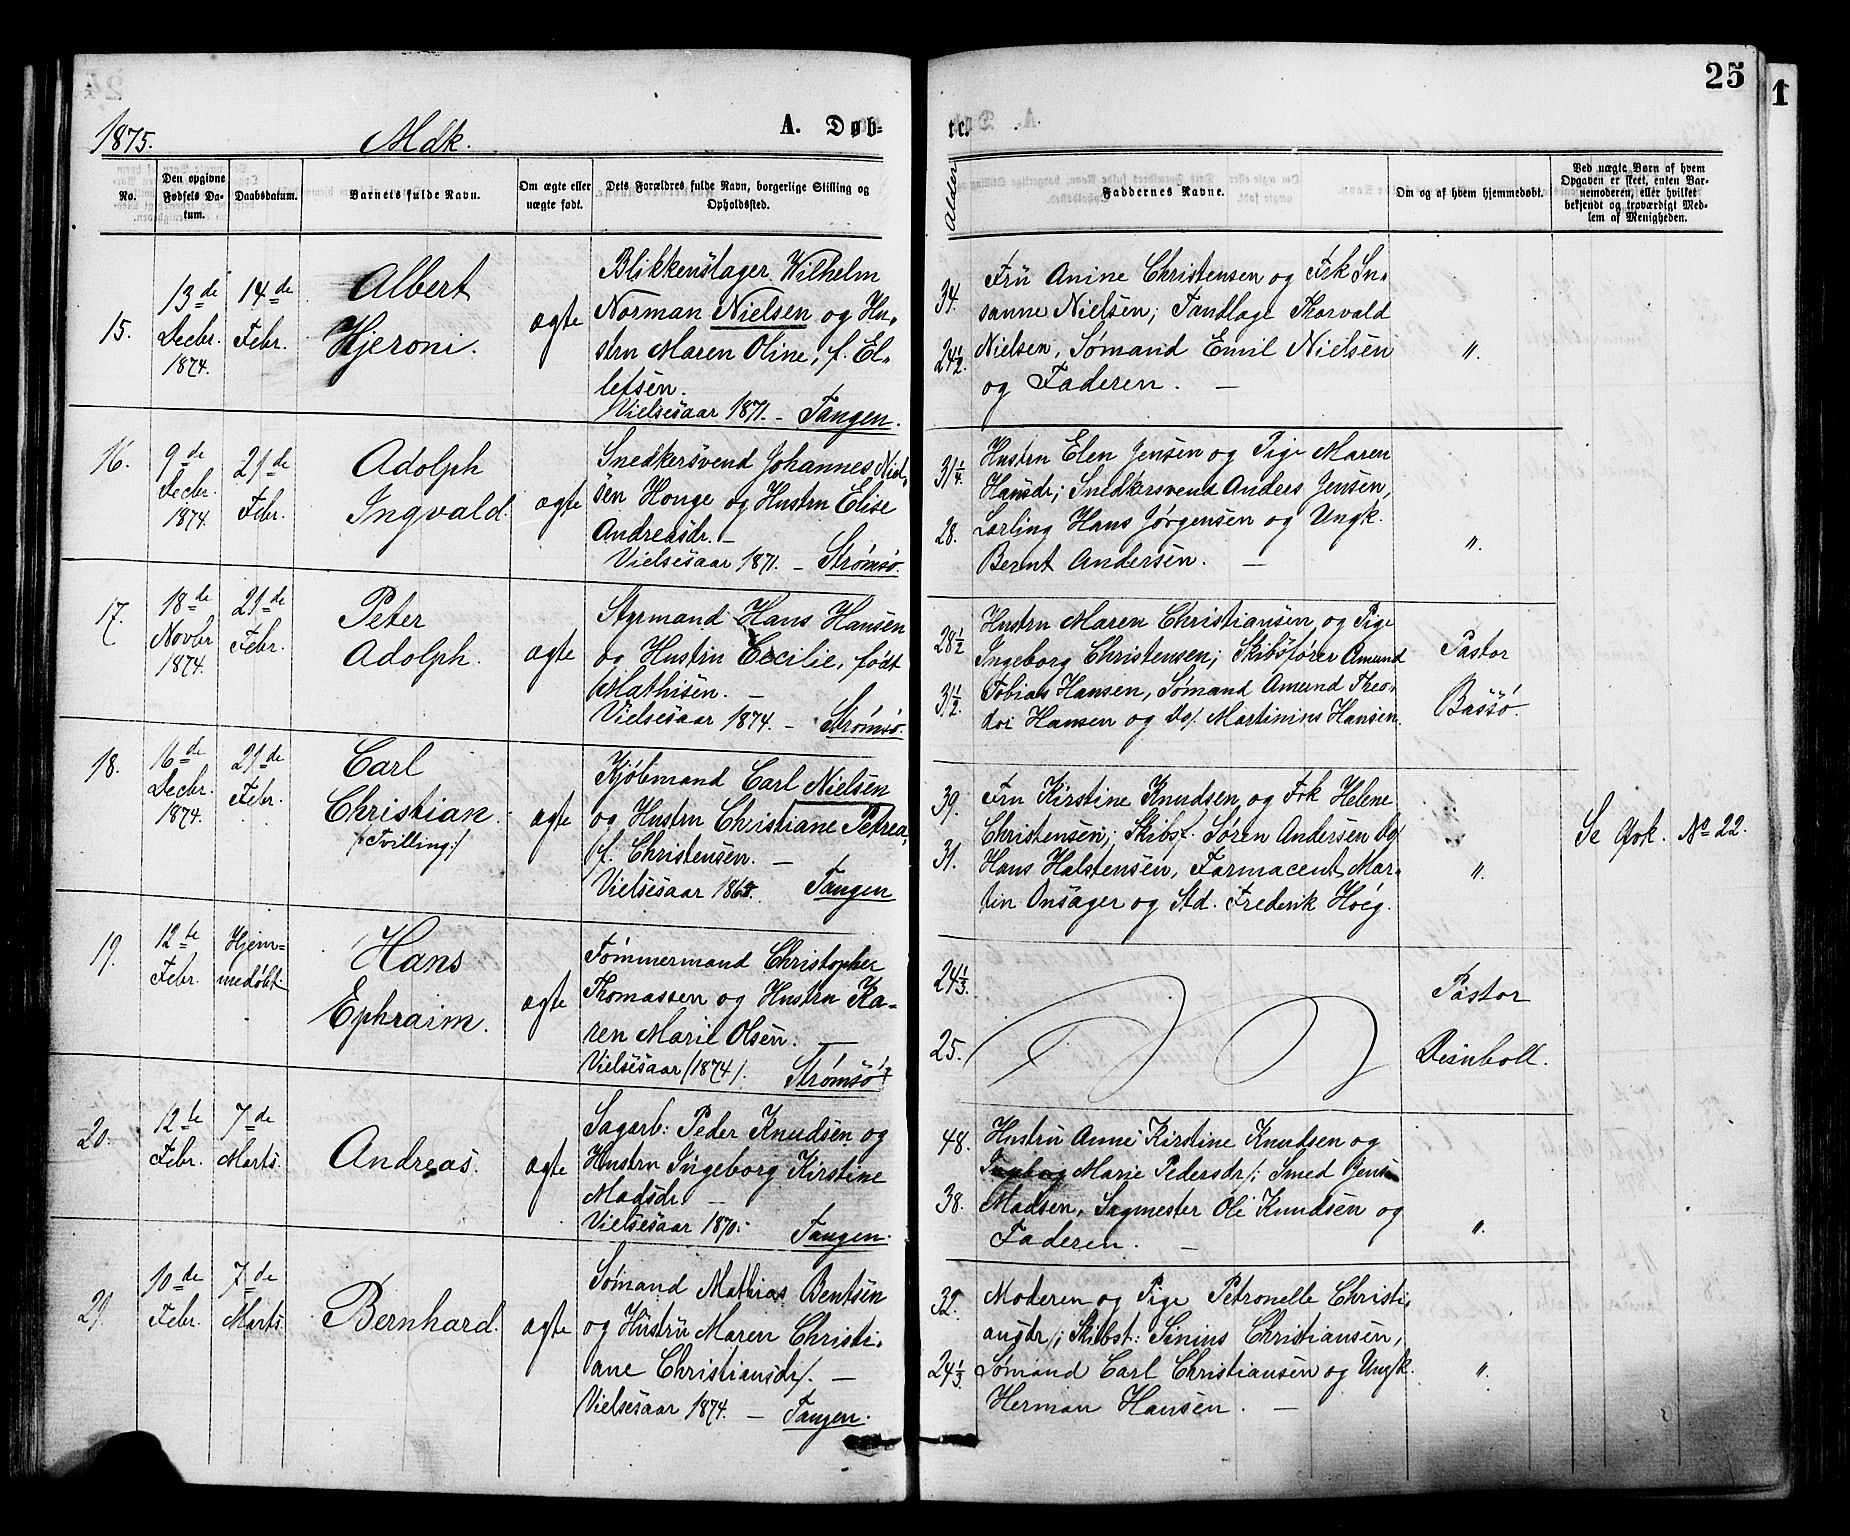 25
1
1875. Mdk. A. Døb- te.
No.
Den opgivne Fødsels Da- tum.
Daabsdatum.
Barnets fulde Navn.
Om ægte eller uægte født.
Dets Forældres fulde Navn, borgerlige Stilling og Opholdssted.
Alder
Faddernes Navne.
Om og af hvem hjemmedøbt.
Ved uægte Børn af hvem Opgaven er skeet, enten Bar- nemoderen, eller hvilket bekjendt og troværdigt Med- lem af Menigheden.
15.
13de
Decbr.
1874.
14de
Febr.
Albert
Hjeroni.
ægte
Blikkenslager Wilhelm
Norman Nielsen og Hu-
stru Maren Oline, f. El-
lefsen.
Vielsesaar 1871. – Tangen.
34.
24½
Fru Anine Christensen og Frk Su-
sanne Nielsen; Tandlæge Thorvald
Nielsen, Sømand Emil Nielsen
og Faderen. —
"
16.
9de
Decbr.
1874.
21de
Febr.
Adolph
Ingvald.
ægte
Snedkersvend Johannes Niel-
sen Houge og Hustru Elise
Andreasdr. –
Vielsesaar 1871. – Strømsø.
31¼
28.
Hustru Elen Jensen og Pige Maren
Hansdr; Snedkersvend Anders Jensen,
Lærling Hans Jørgensen og Ungk.
Bernt Andersen. —
"
17.
18de
Novbr
1874.
21de
Febr.
Peter
Adolph.
ægte
Styrmand Hans Hansen
og Hustru Cecilie, født
Mathisen. —
Vielsesaar 1874. – Strømsø.
28½
31½
Hustru Maren Christiansen, og Pige
Ingeborg Christensen; Skibsfører Amund
Tobias Hansen, Sømand Amund Theo-
dor Hansen og Do/ Martinius Hansen.
Pastor
Bassø.
18.
16de
Decbr.
1874.
21de
Febr.
Carl
Christian.
/:Tvilling:/
ægte
Kjøbmand Carl Nielsen
og Hustru Christiane Petrea,
f. Christensen. —
Vielsesaar Tangen
39.
31.
Fru Kirstine Knudsen, og Frk Helene
Christensen; Skibsf. Søren Andersen Do/
Hans Halstensen, Farmaceut Mar-
tin Onsager og Std. Frederik Høeg.
"
Se Qvk. No 22.
19.
12te
Febr.
Hjem-
medøbt.
Hans
Ephraim.
ægte
Tømmermand Christopher
Thomassen og Hustru Ka-
ren Marie Olsen. —
Vielsesaar /1874/. Strømsø
24⅓
25.
Pastor
Deinboll.
20.
12te
Febr.
7de
Marts.
Andreas.
ægte
Sagarb: Peder Knudsen og
Hustru Ingeborg Kirstine
Madsdr. –
Vielsesaar 1870.– Tangen.
48.
38.
Hustru Anne Kirstine Knudsen og
Marie Pedersdr/; Smed Jens
Madsen, Sagmester Ole Knudsen og
Faderen. —
"
21.
10de
Febr.
7de
Marts.
Bernhard.
ægte
Sømand Mathias Bentsen
og Hustru Maren Christi-
ane Christiansdr/. —
Vielsesaar 1874. – Tangen.
32.
24⅓
Moderen og Pige Petronelle Christi-
ansdr/; Skibst: Sinius Christiansen,
Sømand Carl Christiansen og Ungk.
Herman Hansen. —
"